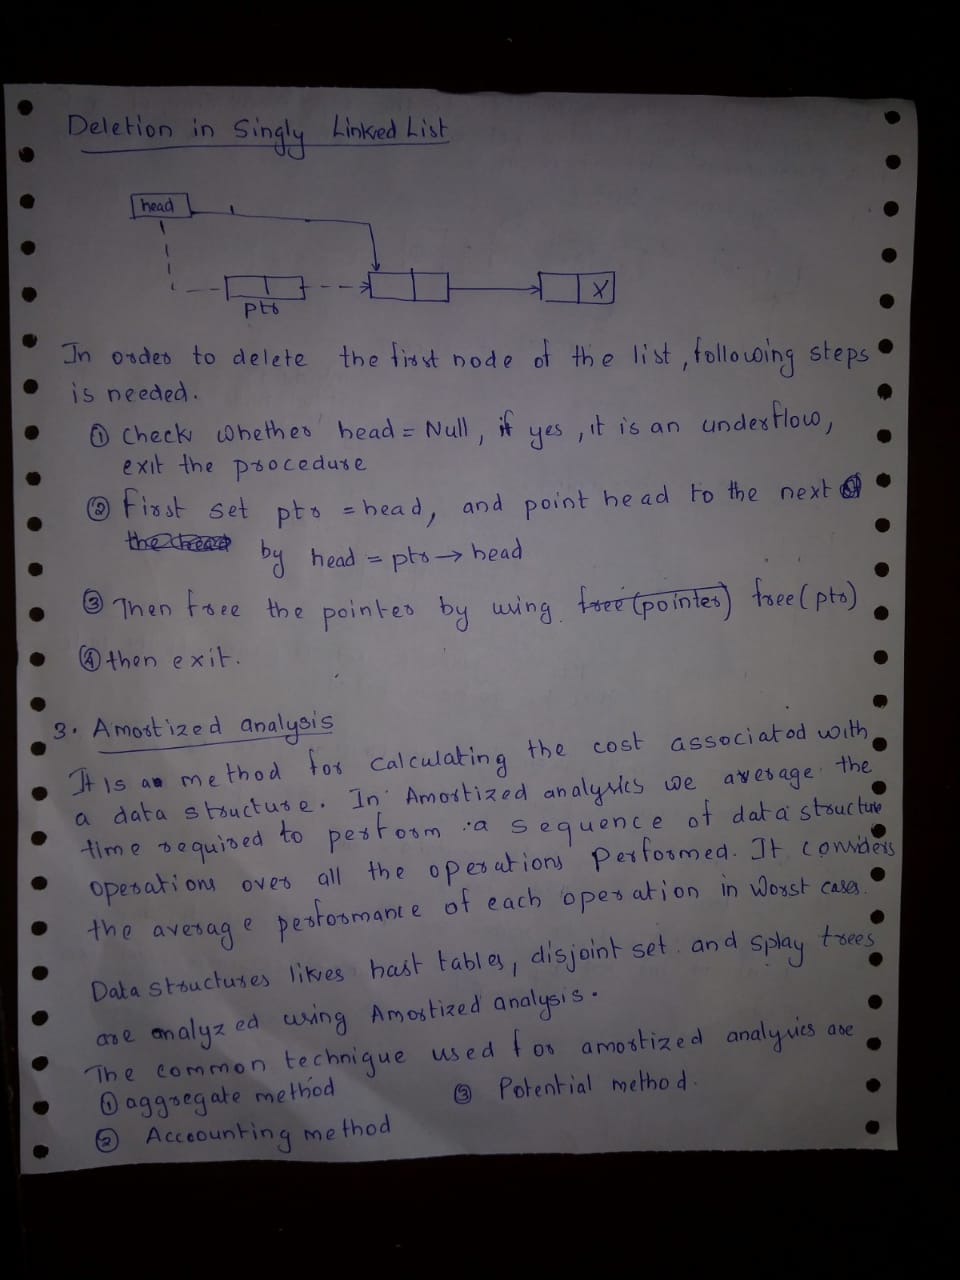 Deletion in Singly Linked List
head
X
ptr
In order to delete the first node of the list, following steps
is needed.
① Check whether head = Null, if yes, it is an underflow,
exit the procedure
② First set ptr = head, and point head to the next
the head by head = ptr → head
③ Then free the pointer by using free (pointer) free(ptr)
④ then exit.
3. Amortized analysis
It is a method for calculating the cost associated with
a data structure. In Amortized analysics we average the
time required to perform a sequence of data structure
operations over all the operations performed. It considers
the average performance of each operation in worst cases.
Data structures likes hast tables, disjoint set and splay trees
are analyzed using Amortized analysis.
The common technique used for amortized analysics are
① aggregate method ③ Potential method.
② Accounting method